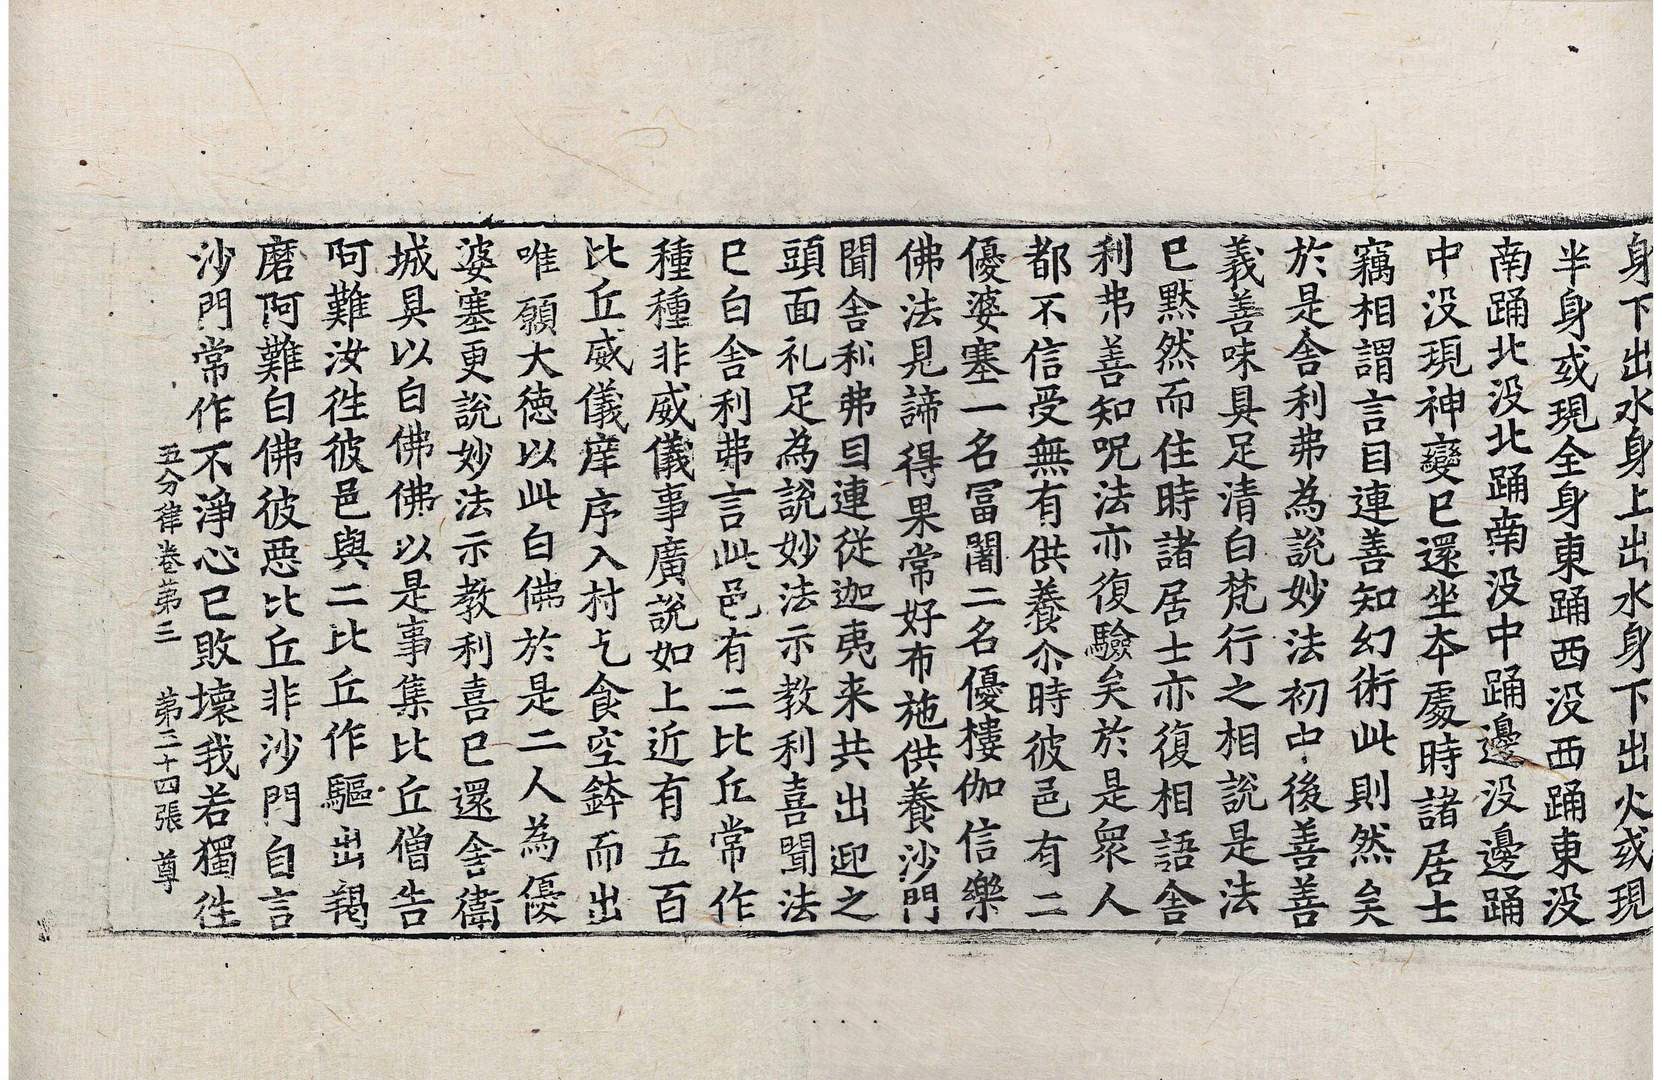 身下出水身上出水身下出火或現
半身或現全身東踊西没西踊東没
南踊北没北踊南没中踊邊没邊踊
中没現神變已還坐夲處時諸居士
竊相謂言目連善知幻術此則然矣
於是舍利弗為說妙法初中後善善
義善味具足清白梵行之相說是法
已黙然而住時諸居士亦復相語舍
利弗善知呪法亦復驗矣於是衆人
都不信受無有供養尒時彼邑有二
優婆塞一名冨闍二名優樓伽信樂
佛法見諦得果常好布施供養沙門
聞舍利弗目連從迦夷来共出迎之
頭面礼足為說妙法示教利喜聞法
已白舍利弗言此邑有二比丘常作
種種非威儀事廣說如上近有五百
比丘威儀庠序入村乞食空鉢而出
唯願大德以此白佛於是二人為優
婆塞更說妙法示教利喜已還舍衛
城具以白佛佛以是事集比丘僧告
阿難汝徃彼邑與二比丘作驅出羯
磨阿難白佛彼惡比丘非沙門自言
沙門常作不淨心已敗壞我若獨徃
五分律卷第三 第二十四張 尊